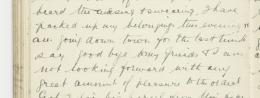 heard the cussing & swearing. I have
packed up my belongings this evening &
am going down town for the last time to
say good bye to my friends. I am
not looking forward with any
great amount of pleasure to the ordeal